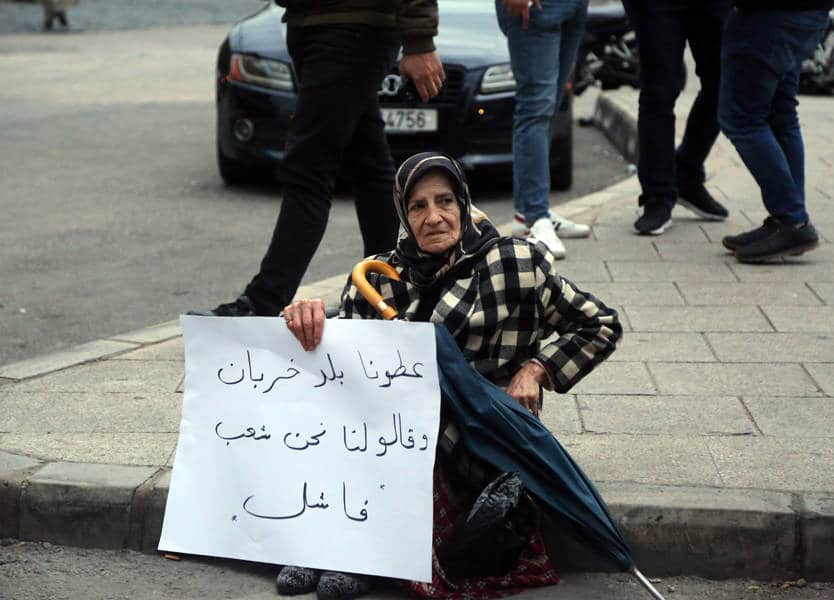 عطونا بلد خربان
وقالولنا نحن شعب
"فاشل"
4756